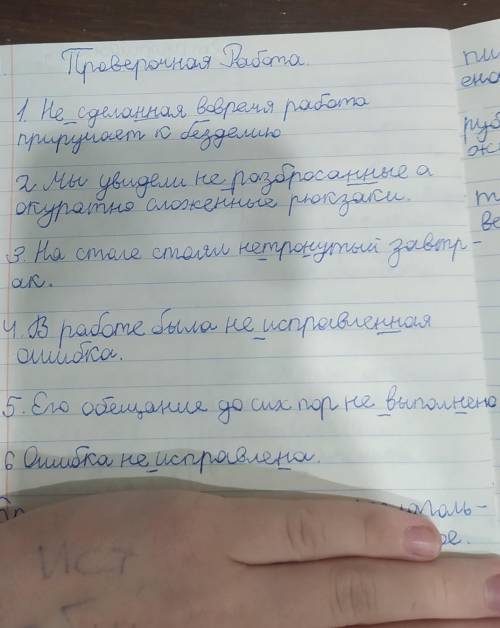 Проверочная Работа.
1. Не сделанная вовремя работа
приручает к безделию
2. Мы увидели не разбросанные а
окуратно сложенные рюкзаки.
3. На столе стоял нетронутый завтр-
ак.
4. В работе была не исправленная
ошибка.
5. Его обещание до сих пор не выполнено
6 Ошибка не исправлена.